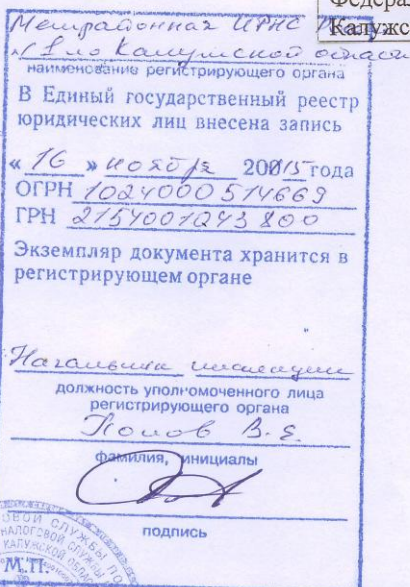 Федера
Калужс
Межрайонная ИФНС
№ 1 по Калужской области
наименование регистрирующего органа
В Единый государственный реестр
юридических лиц внесена запись
« 16 » ноября 2015 года
ОГРН 1024000514669
ГРН 2154001243800
Экземпляр документа хранится в
регистрирующем органе
Начальник инспекции
должность уполномоченного лица
регистрирующего органа
Попов В.
фамилия, инициалы
подпись
ОВОЙ СЛУЖБЫ ПО
НАЛОГОВОЙ СЛУЖБЫ
КАЛУЖСКОЙ ОБЛ
М.П.